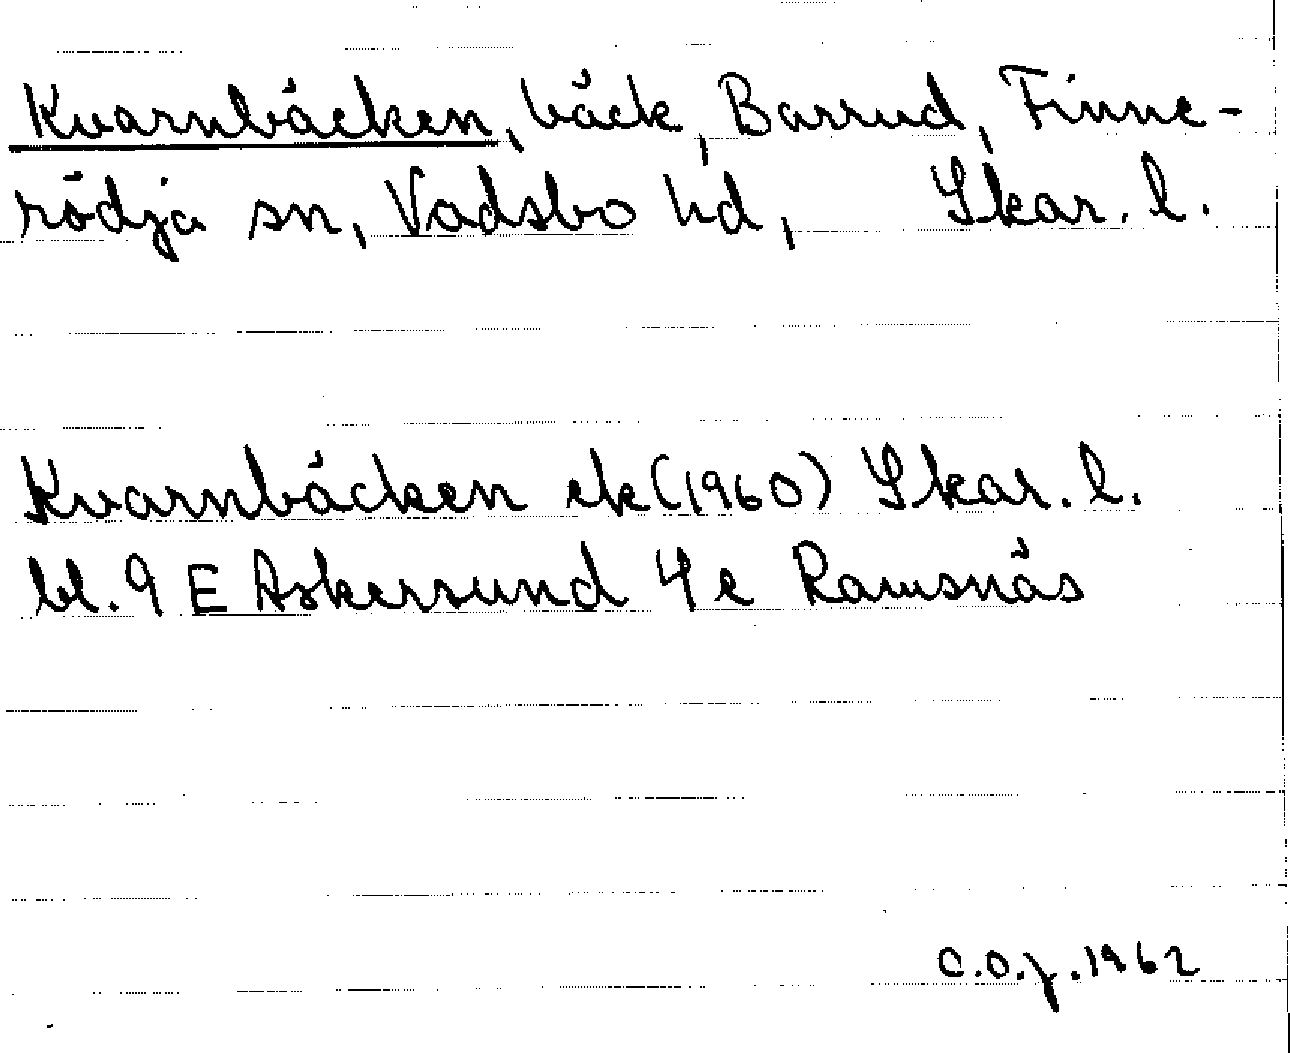 Kvarnbäcken, bäck, Barrud, Finne-
rödja sn, Vadsbo hd, Skar. l.
Kvarnbäcken ek (1960) Skar. l.
bl. 9 E Askersund 4 e Ramsnäs
C.O.J. 1962